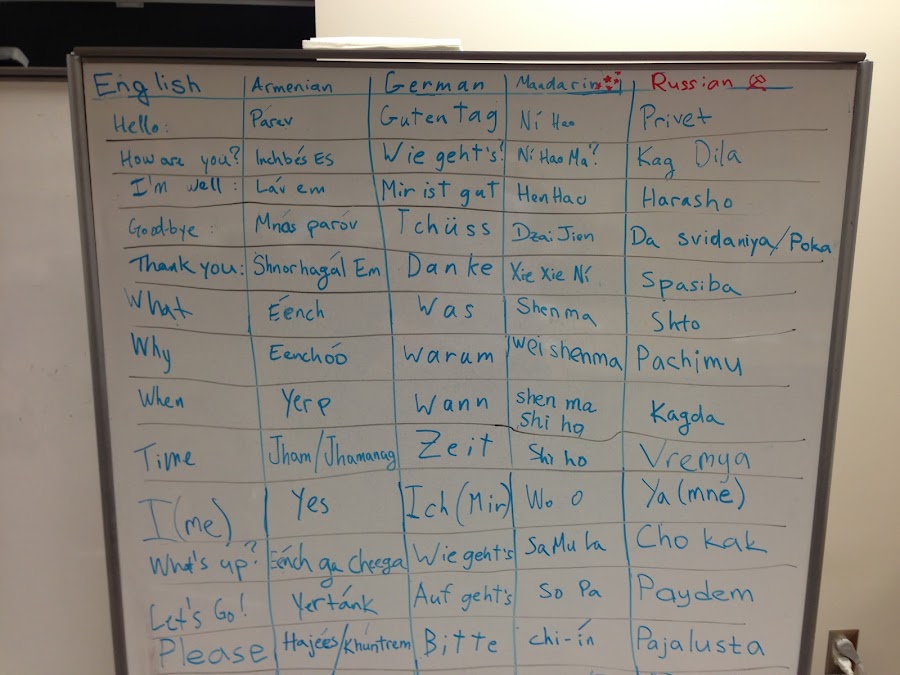 English Armenian German Mandarin Russian
Hello: Parev Guten Tag Ni Hao Privet
How are you? Inchbés Es Wie geht's? Ni Hao Ma? Kag Dila
I'm well: Láv em Mir ist gut Hen Hao Harasho
Good-bye: Mnás paróv Tchüss Dzai Jien Da svidaniya/Poka
Thank you: Shnorhagál Em Danke Xie Xie Ní Spasiba
What Éénch Was Shenma Shto
Why Eenchóó Warum Wei shenma Pachimu
When Yerp Wann shen ma Kagda
shi ho
Time Jham/Jhamanag Zeit Shi ho Vremya
I(me) Yes Ich(Mir) Wo O Ya(mne)
What's up? Éénch ga Cheega Wie geht's Sa Mu La Cho kak
Let's Go! Yertánk Auf geht's So Pa Paydem
Please Hajées/Khúntrem Bitte chi-ín Pajalusta